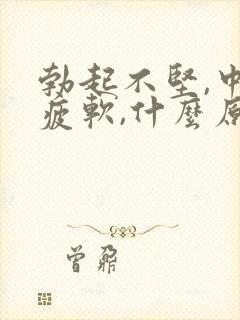 勃起不堅,中
疲軟,什麼原
曾鼐